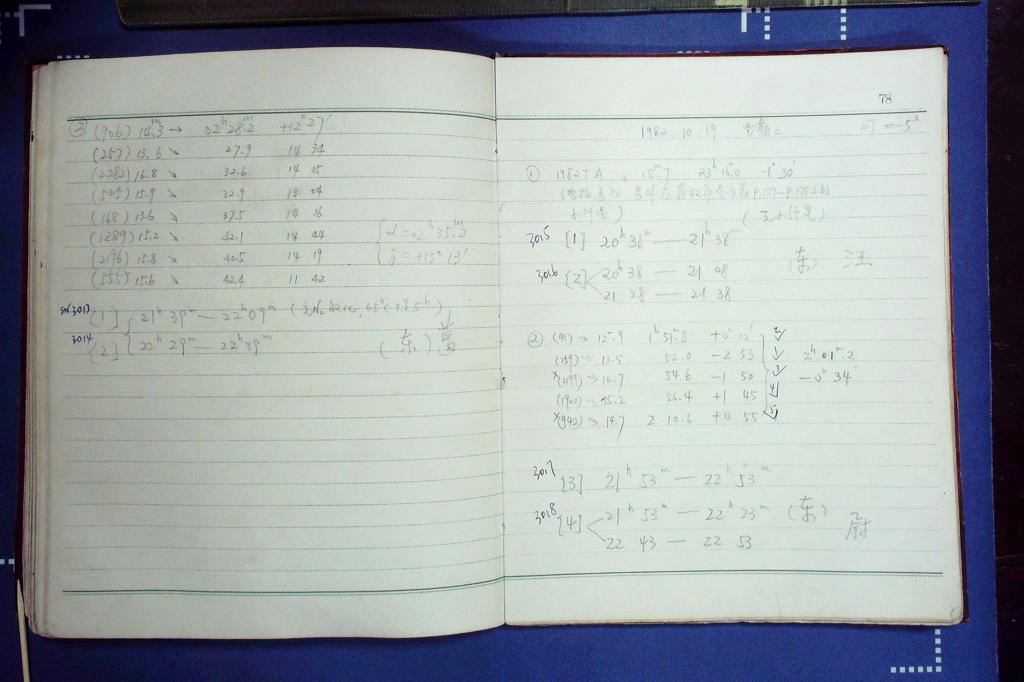 ③ (906) 14.3ᵐ → 02ʰ28ᵐ.2 +12°27′
(257) 13.6 ↘ 27.9 14 34
(2282) 16.8 ↘ 32.6 14 05
(525) 15.9 ↘ 32.9 13 04
(168) 13.6 ↘ 37.5 14 16
(1289) 15.2 ↘ 42.1 14 44
(2196) 15.8 ↘ 40.5 14 19
(555) 15.6 ↘ 42.4 11 42
α=02ʰ35ᵐ.2
δ=+13°13′
3013 [1] 21ʰ39ᵐ — 22ʰ09ᵐ
3014 [2] 22ʰ29ᵐ — 22ʰ39ᵐ (东)
78
1982.10.19 星期二 =-5ˢ
① 1982TA ↘ 15ᵐ.7 23ʰ15ᵐ.0 -1°30′
3015 [1] 20ʰ38ᵐ — 21ʰ38ᵐ
3016 [2] 20ʰ38 — 21 08 (东) 汪
21 28 — 21 38
② (41) → 12ᵐ.9 1ʰ51ᵐ.8 +0°12′ 2
(239) → 13.5 52.0 -2 53 1 2ʰ01ᵐ.2
×(2199) → 16.7 54.6 -1 50 3 -0°34′
(1902) → 15.2 56.4 +1 45 4
×(942) → 14.7 2 10.6 +0 55 5
3017 [3] 21ʰ53ᵐ — 22ʰ53ᵐ
3018 [4] 21ʰ53ᵐ — 22ʰ23ᵐ (东) 尉
22 43 — 22 53